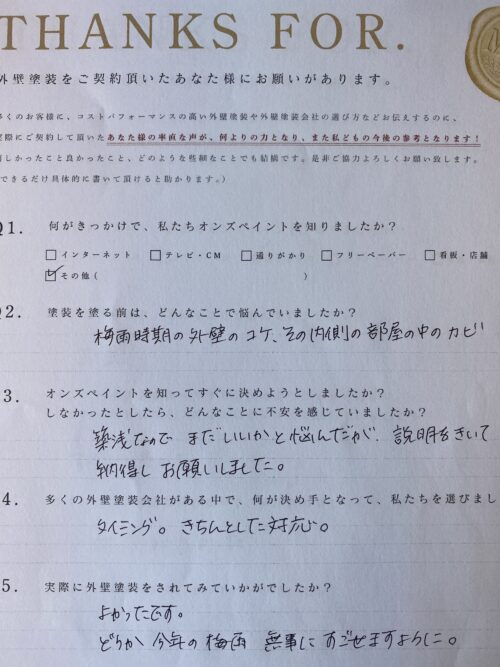 THANKS FOR.
外壁塗装をご契約頂いたあなた様にお願いがあります。
多くのお客様に、コストパフォーマンスの高い外壁塗装や外壁塗装会社の選び方などお伝えするのに、
実際にご契約して頂いたあなた様の率直な声が、何よりの力となり、また私どもの今後の参考となります！
嬉しかったこと良かったこと、どのような些細なことでも結構です。是非ご協力よろしくお願い致します。
できるだけ具体的に書いて頂けると助かります。)
Q1. 何がきっかけで、私たちオンズペイントを知りましたか？
□インターネット □テレビ・CM □通りがかり □フリーペーパー □看板・店舗
☑その他( )
Q2. 塗装を塗る前は、どんなことで悩んでいましたか？
梅雨時期の外壁のコケ、その内側の部屋の中のカビ
3. オンズペイントを知ってすぐに決めようとしましたか？
しなかったとしたら、どんなことに不安を感じていましたか？
築浅なので まだいいかと悩んだが、説明をきいて
納得し お願いしました。
4. 多くの外壁塗装会社がある中で、何が決め手となって、私たちを選びまし
タイミング。きちんとした対応。
5. 実際に外壁塗装をされてみていかがでしたか？
よかったです。
どうか 今年の梅雨 無事に すごせますように。